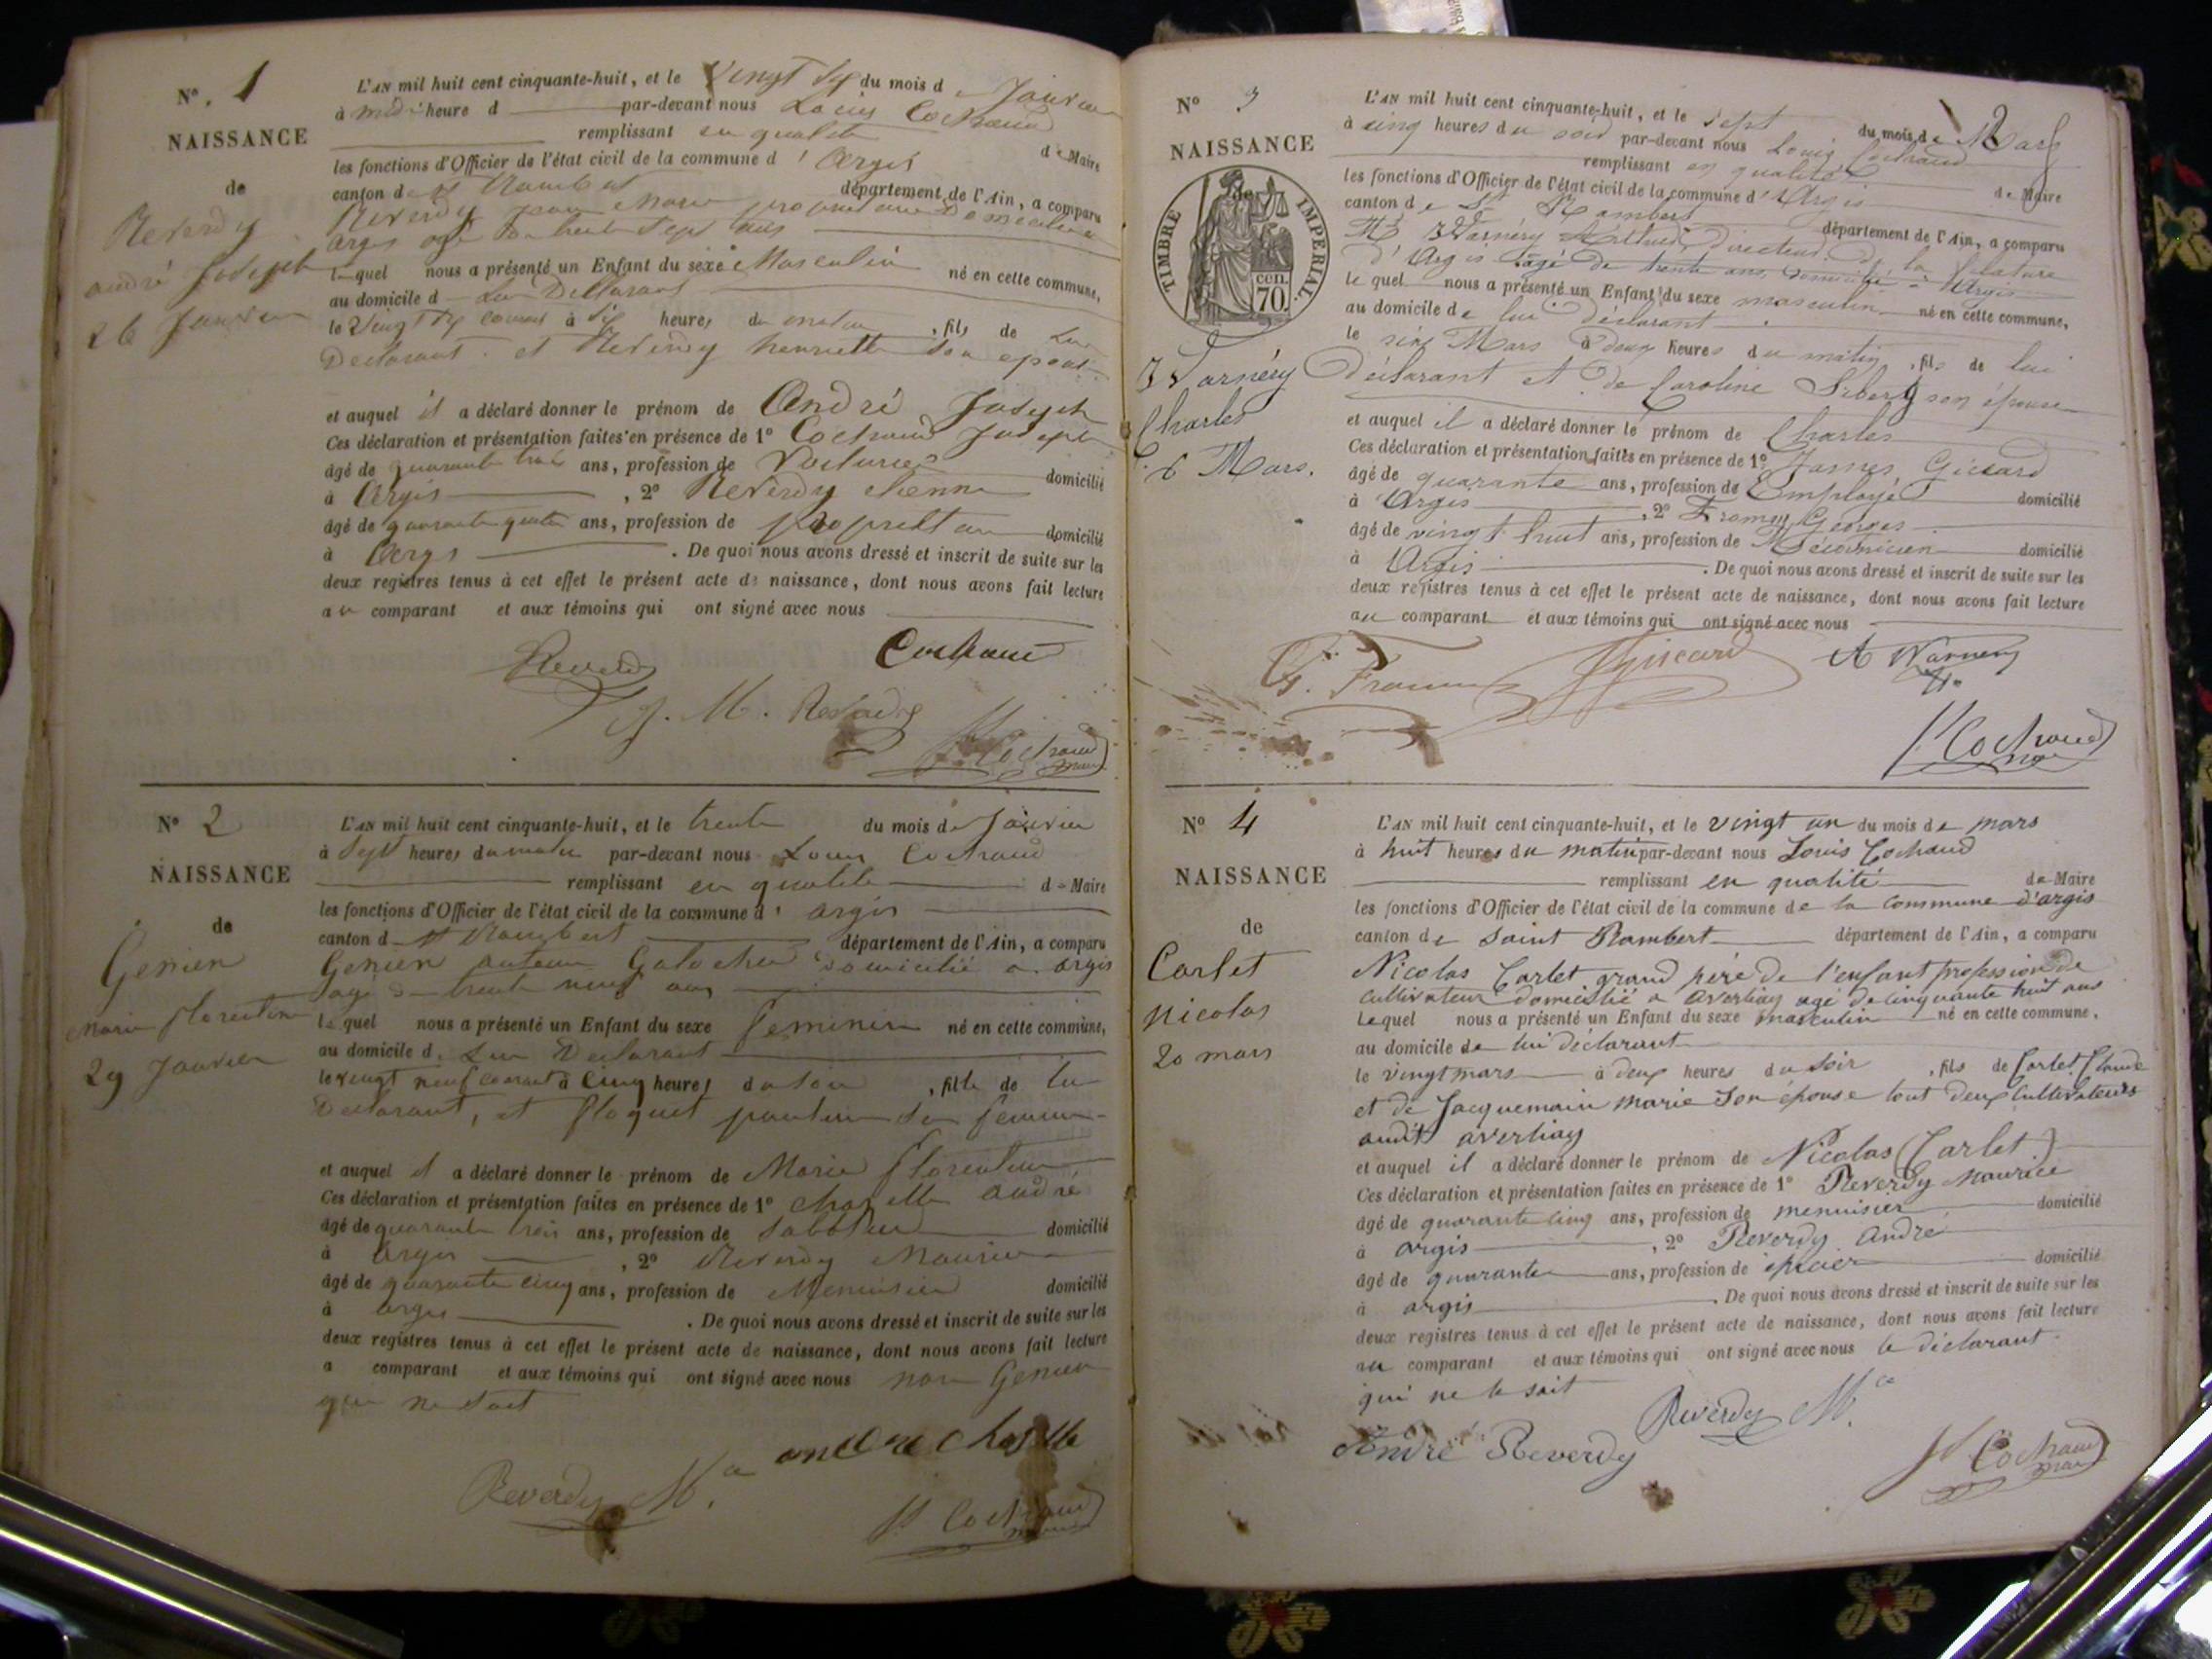 N° 1
NAISSANCE
de
Reverdy
andré Joseph
26 Janvier
L'AN mil huit cent cinquante-huit, et le Vingt Six du mois d Janvier
à midi heure d par-devant nous Louis Cochaud
remplissant en qualité d Maire
les fonctions d'Officier de l'état civil de la commune d' Argis
canton d St Rambert département de l'Ain, a comparu
Reverdy jean Marie proprietaire Domicilié
argis agé de trente Sept ans
lequel nous a présenté un Enfant du sexe Masculin né en cette commune,
au domicile d Lui Déclarant
le Vingt Six courant à Six heures du matin, fils de Lui
Declarant et Reverdy henriette Son epouse
et auquel il a déclaré donner le prénom de André Joseph
Ces déclaration et présentation faites en présence de 1° Cochaud Joseph
âgé de quarante trois ans, profession de Voiturier domicilié
à Argis, 2° Reverdy etienne
âgé de quarante quatre ans, profession de proprietaire domicilié
à Argis. De quoi nous avons dressé et inscrit de suite sur les
deux registres tenus à cet effet le présent acte de naissance, dont nous avons fait lecture
au comparant et aux témoins qui ont signé avec nous
Cochaud
Reverdy
J. M. Reverdy
L. Cochaud
maire
N° 2
NAISSANCE
de
Genien
Marie florentine
29 Janvier
L'AN mil huit cent cinquante-huit, et le trente du mois de Janvier
à Sept heures du matin par-devant nous Louis Cochaud
remplissant en qualité de Maire
les fonctions d'Officier de l'état civil de la commune d' argis
canton d St Rambert département de l'Ain, a comparu
Genien Galochier domicilié a argis
agé de trente neuf ans
lequel nous a présenté un Enfant du sexe feminin né en cette commune,
au domicile d Lui Declarant
le vingt neuf courant à Cinq heures du soir, fille de lui
Declarant, et floquet Sa femme
et auquel il a déclaré donner le prénom de Marie florentine
Ces déclaration et présentation faites en présence de 1° chapelle andré
âgé de quarante trois ans, profession de Sabotier domicilié
à Argis, 2° Reverdy Maurice
âgé de quarante cinq ans, profession de Menuisier domicilié
à argis. De quoi nous avons dressé et inscrit de suite sur les
deux registres tenus à cet effet le présent acte de naissance, dont nous avons fait lecture
a comparant et aux témoins qui ont signé avec nous non Genien
qui ne sait
andré chapelle
Reverdy Mce
L. Cochaud
maire
2
N° 3
NAISSANCE
de
TIMBRE IMPERIAL.
cen.
70.
Warnéry
Charles
6 Mars.
L'AN mil huit cent cinquante-huit, et le Sept du mois de Mars
à cinq heures du soir par-devant nous Louis Cochaud
remplissant en qualité de Maire
les fonctions d'Officier de l'état civil de la commune d' Argis
canton de St Rambert département de l'Ain, a comparu
Mr Warnéry directeur de la filature
d'Argis agé de trente ans, domicilié à Argis
lequel nous a présenté un Enfant du sexe masculin né en cette commune,
au domicile de lui déclarant
le six Mars à deux heures du matin, fils de lui
déclarant et de Caroline son épouse
et auquel il a déclaré donner le prénom de Charles
Ces déclaration et présentation faites en présence de 1° James Gicard
âgé de quarante ans, profession de Employé domicilié
à Argis, 2° Georges
âgé de vingt huit ans, profession de Mécanicien domicilié
à Argis. De quoi nous avons dressé et inscrit de suite sur les
deux registres tenus à cet effet le présent acte de naissance, dont nous avons fait lecture
au comparant et aux témoins qui ont signé avec nous
G. A Warnery
L. Cochaud
maire
N° 4
NAISSANCE
de
Carlet
Nicolas
20 mars
L'AN mil huit cent cinquante-huit, et le vingt un du mois de mars
à huit heures du matin par-devant nous Louis Cochaud
remplissant en qualité de Maire
les fonctions d'Officier de l'état civil de la commune de la commune d'argis
canton de Saint Rambert département de l'Ain, a comparu
Nicolas Carlet grand père de l'enfant profession de
cultivateur domicilié a averliaz agé de cinquante huit ans
Lequel nous a présenté un Enfant du sexe masculin né en cette commune,
au domicile de lui déclarant
le vingt mars à deux heures du soir, fils de Carlet Claude
et de Jacquemain marie Son épouse tout deux Cultivateurs
audit averliaz
et auquel il a déclaré donner le prénom de Nicolas (Carlet)
Ces déclaration et présentation faites en présence de 1° Reverdy Maurice
âgé de quarante cinq ans, profession de menuisier domicilié
à argis, 2° Reverdy André
âgé de quarante ans, profession de épicier domicilié
à argis. De quoi nous avons dressé et inscrit de suite sur les
deux registres tenus à cet effet le présent acte de naissance, dont nous avons fait lecture
au comparant et aux témoins qui ont signé avec nous le déclarant
qui ne le sait
Reverdy Mce
André Reverdy
L. Cochaud
maire